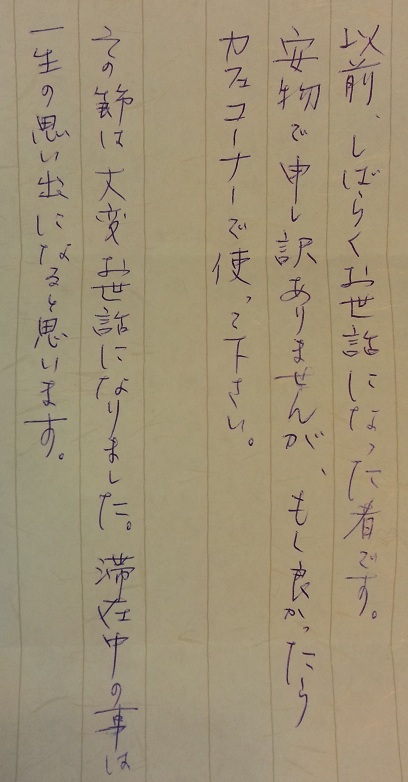 以前、しばらくお世話になった者です。
安物で申し訳ありませんが、もし良かったら
カフェコーナーで使って下さい。
その節は大変お世話になりました。滞在中の事は
一生の思い出になると思います。